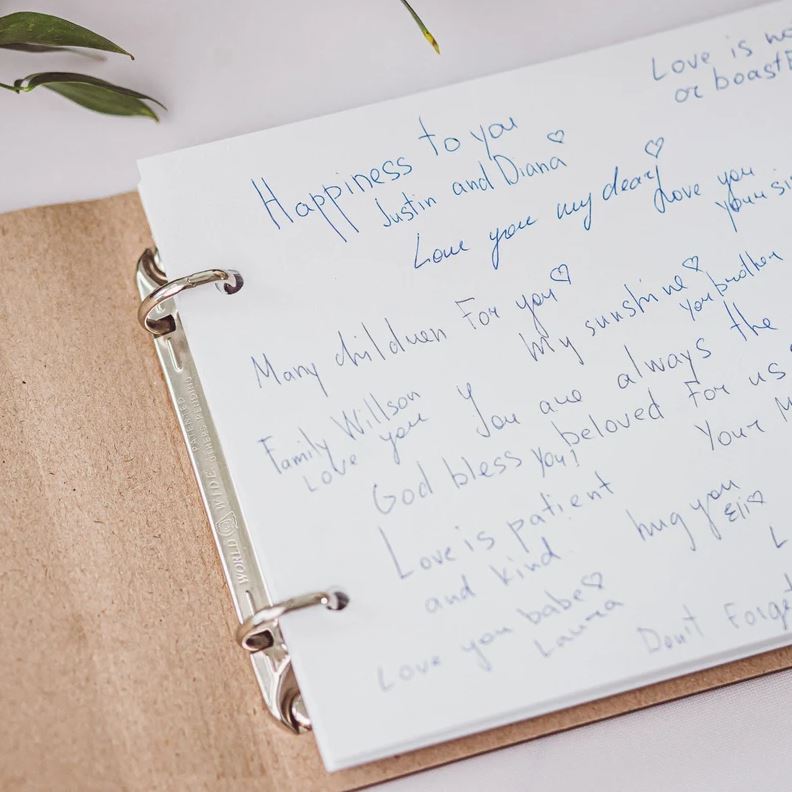 Love is
or boast
Happiness to you
Justin and Diana
Love you my dear
Love you
your
Many children For you
My sunshine
your brother
Family Willson
Love you
You are always the
beloved For us
God bless you!
Your
Love is patient
and kind
hug you
Eli
Love you babe
Laura
Don't Forget
WORLD WIDE
PATENTED